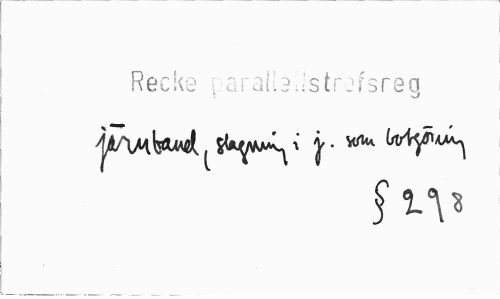 Recke parallellstrofsreg
järnband, slagning i j. som botgöring
§ 298